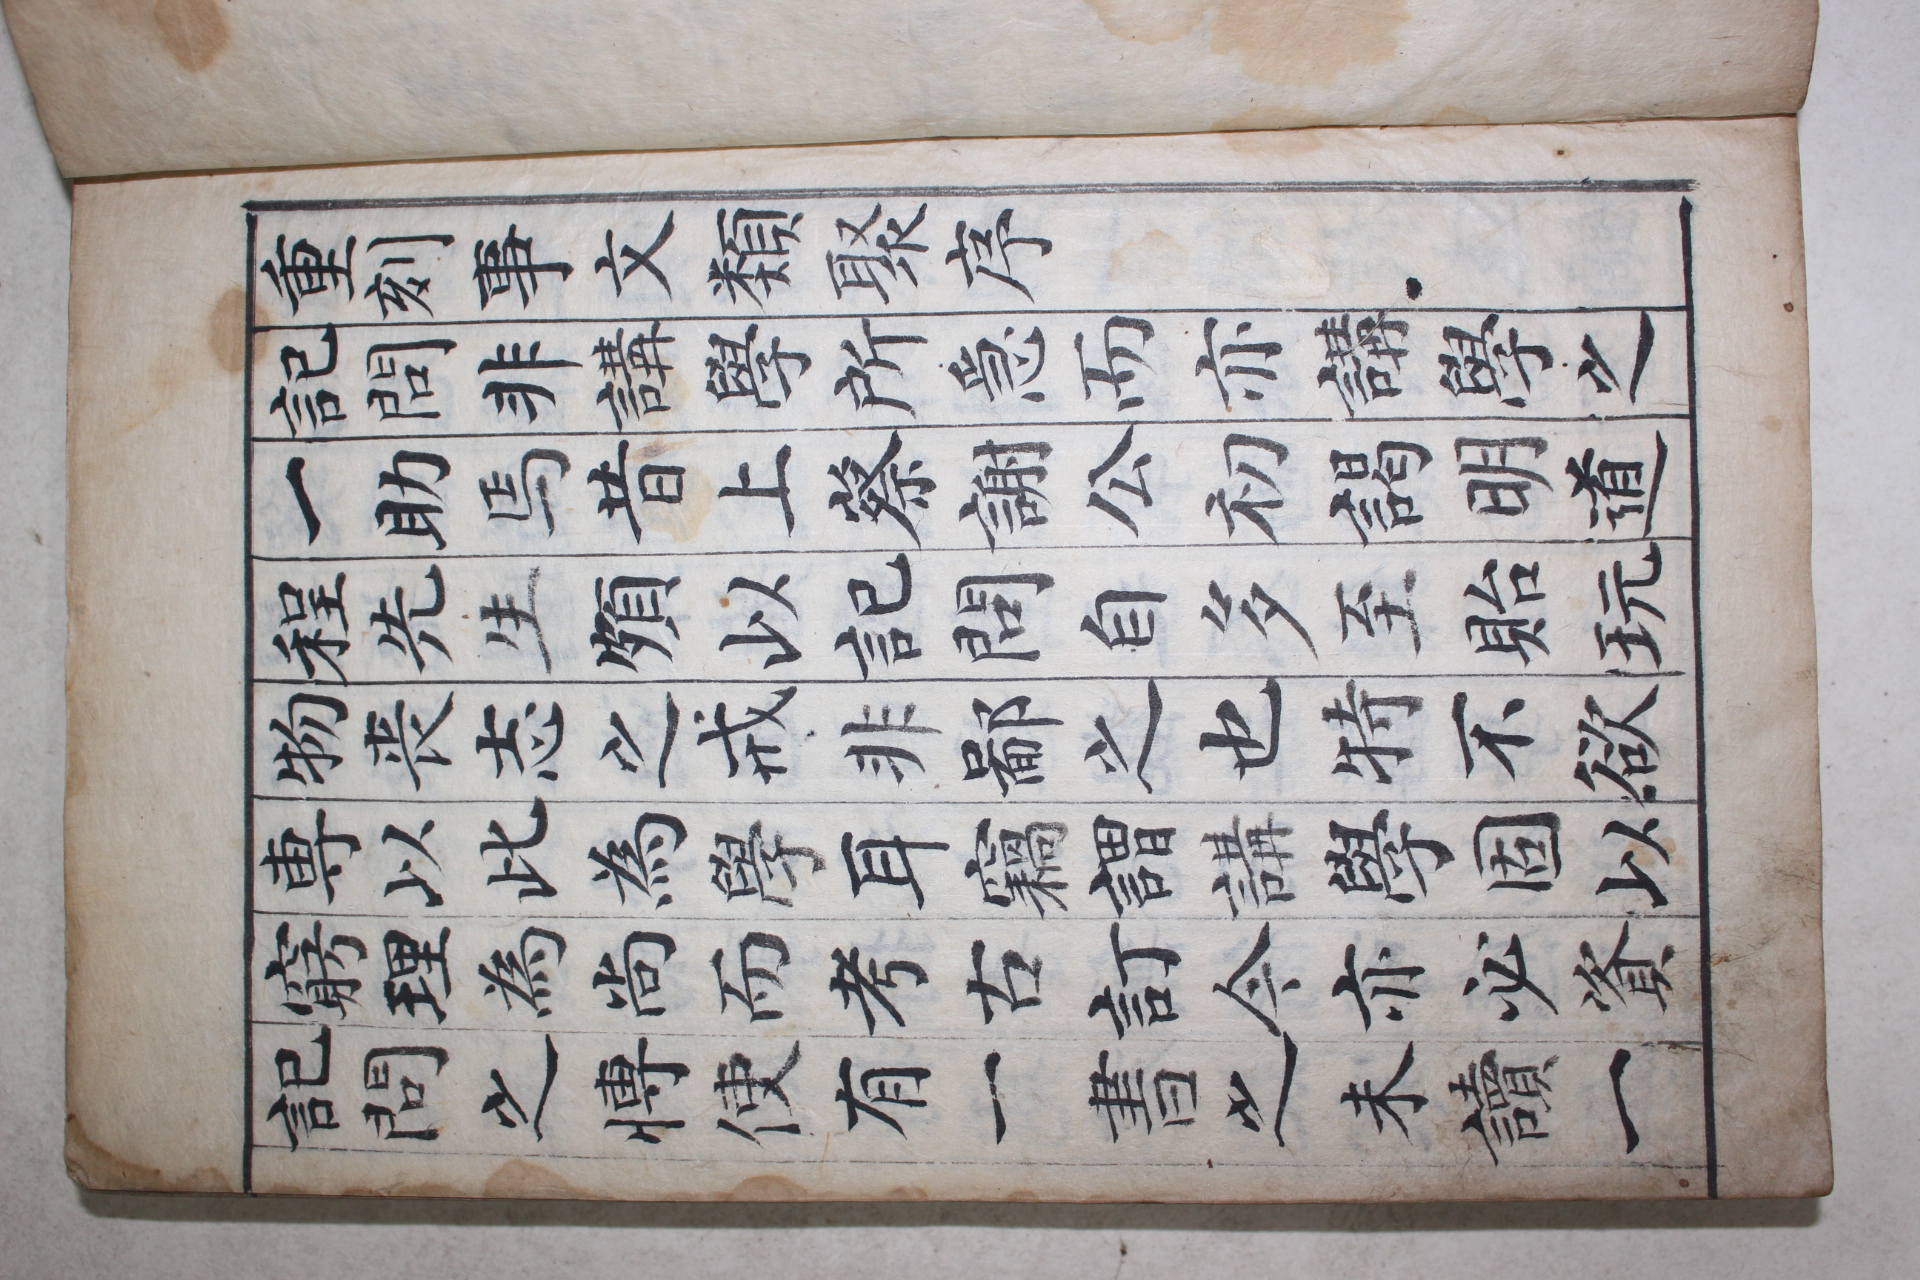 重刻事文類聚序
記問非講學所急而亦講學之
一助焉昔上蔡謝公初謁明道
程先生頗以記問自多至貽玩
物丧志之戒非鄙之也特不欲
專以此為學耳竊謂講學固以
窮理為尚而考古訂今亦必資
記問之博使有一書之未讀一